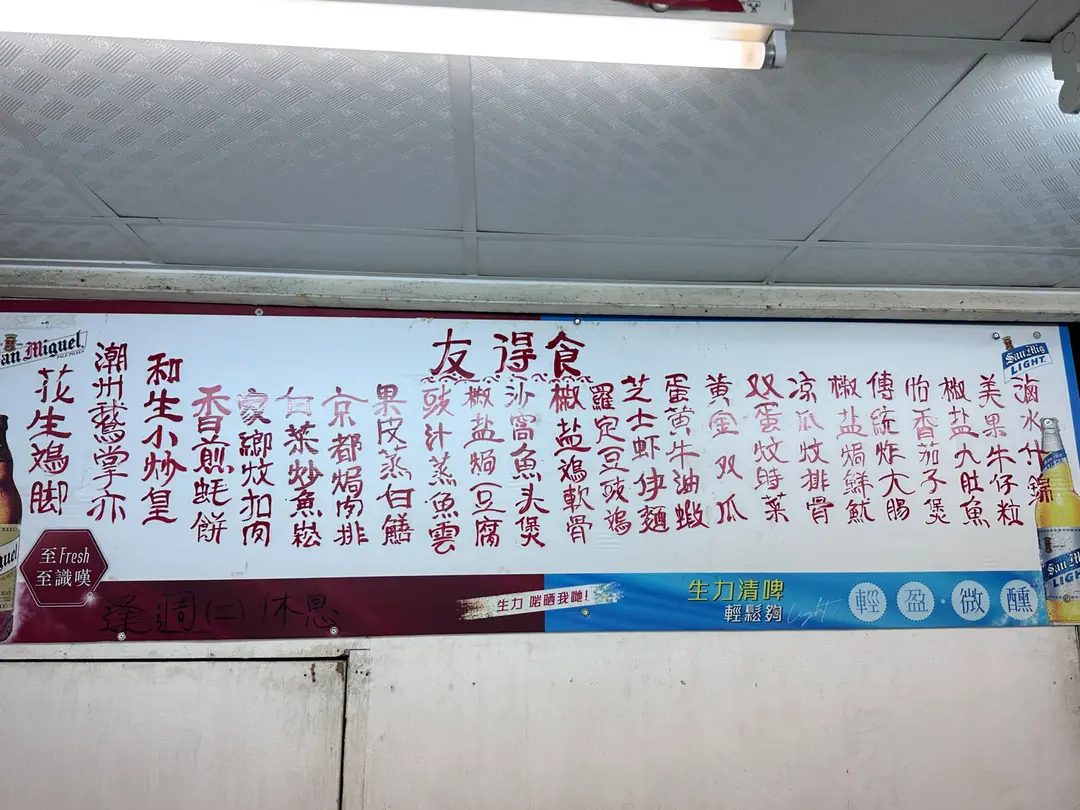 友得食
滷水什錦
美果牛仔粒
椒盐九肚魚
怡香茄子煲
傳統炸大腸
椒盐焗鮮魷
凉瓜炆排骨
双蛋炆時菜
黄金双瓜
蛋黄牛油蝦
芝士虾伊麵
羅定豆豉鸡
椒盐鸡軟骨
沙窩魚头煲
椒盐焗豆腐
豉汁蒸魚雲
果皮蒸白鱔
京都焗肉排
白菜炒魚崧
家鄉炆扣肉
香煎蚝餅
和生小炒皇
潮州鵝掌亦
花生鸡脚
San Miguel
PALE PILSEN
San Mig
LIGHT
至Fresh
至識嘆
逢週(二)休息
生力 啱晒我哋!
生力清啤
輕鬆夠 Light
輕盈·微醺
San Mig
LIGHT